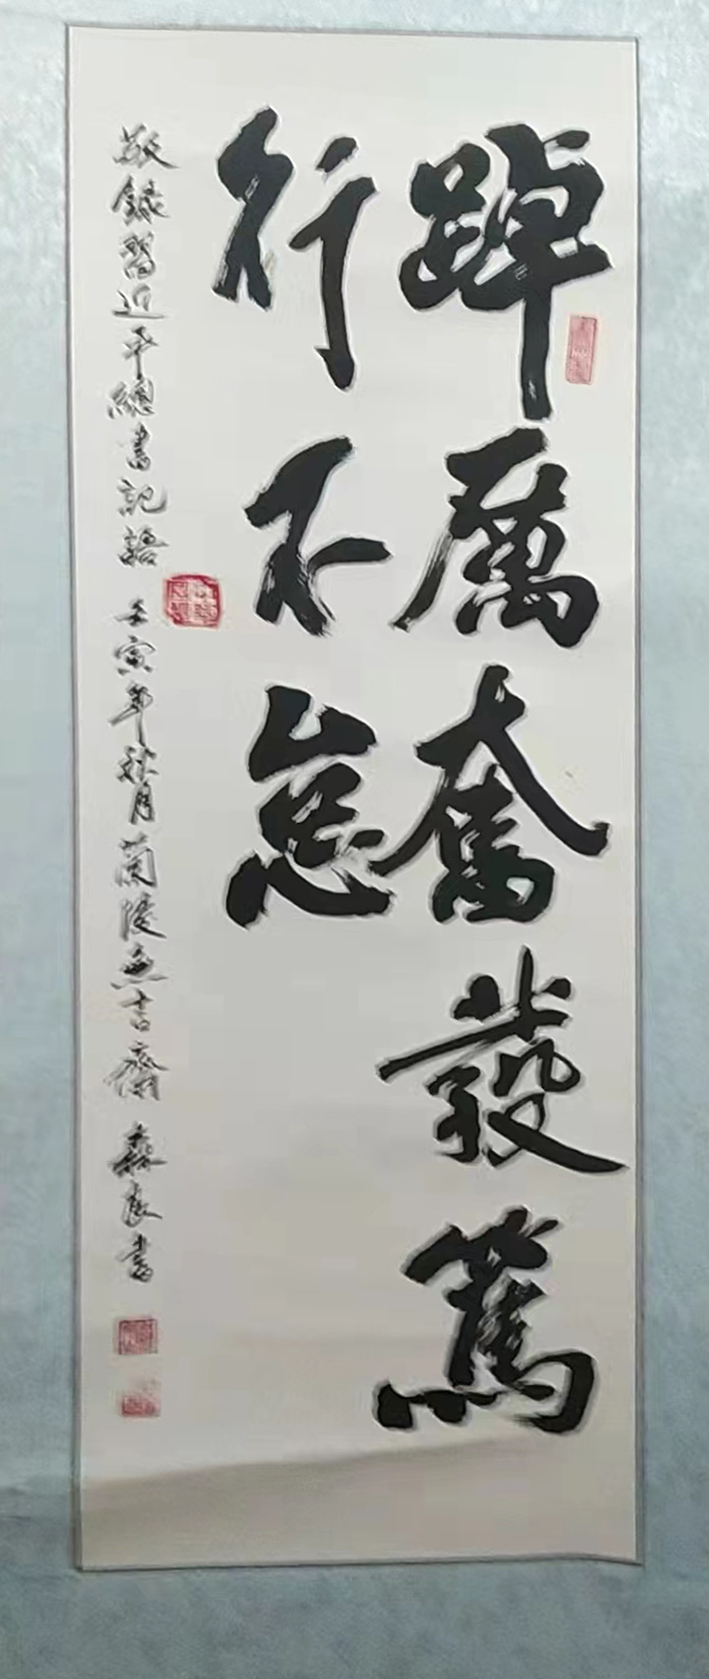 踔厲奮發篤
行不怠
敬錄習近平總書記語 壬寅年秋月蘭陵無言齋 森良書